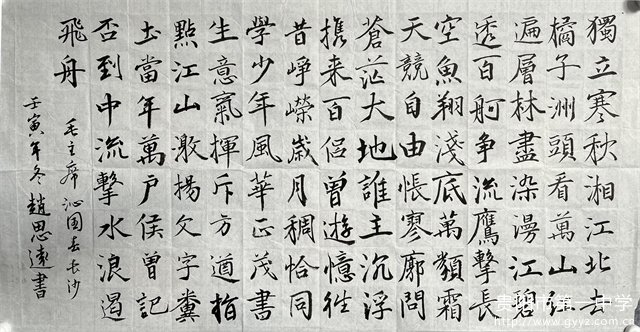 獨立寒秋湘江北去
橘子洲頭看萬山红
遍層林盡染漫江碧
透百舸争流鷹擊長
空魚翔淺底萬類霜
天競自由悵寥廓問
蒼茫大地誰主沉浮
携来百侣曾遊憶往
昔峥嶸歲月稠恰同
學少年風華正茂書
生意氣揮斥方遒指
點江山激揚文字糞
土當年萬户侯曾記
否到中流擊水浪遏
飛舟
毛主席沁园春长沙
壬寅年冬趙思遠書
贵阳市第一中学
www.gyyz.com.cn